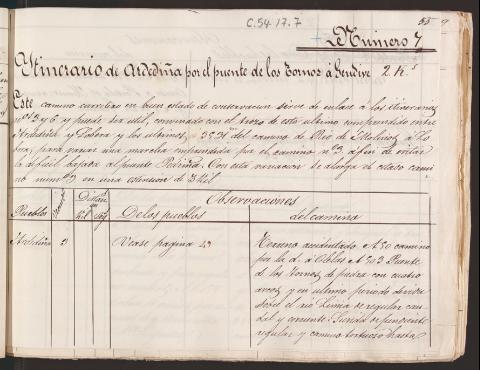 C.54.17.7
55
Número 7
Ytinerario de Ardediña por el puente de los Tornos á Gendive 2 Ks
Este camino carretero en buen estado de conservacion sirve de enlace á los itinerarios
nos 3 y 6 y puede ser util, convinado con el trozo de este ultimo comprendido entre
y Lobera y los ultimos 3'5 Klm del camino de Rio de Molinos á Lo
bera, para variar una marcha emprendida por el camino nº 3 á fin de evitar
la dificil bajada al puente Pedriña. Con esta variacion se alarga el citado cami
no numº 3 en una estension de 3 Kil
Pueblos
Distan
Kil
Observaciones
De los pueblos
del camino
Ardediña
2
Vease pagina 43
Terreno accidentado A 50 camino
por la d. á Obelos A 503 Puente
de los Tornos de piedra con cuatro
arcos y en ultimo periodo de vida
sobre el rio Limia de regular cau
dal y corriente. Subida de pendiente
regular y camino tortuoso hasta